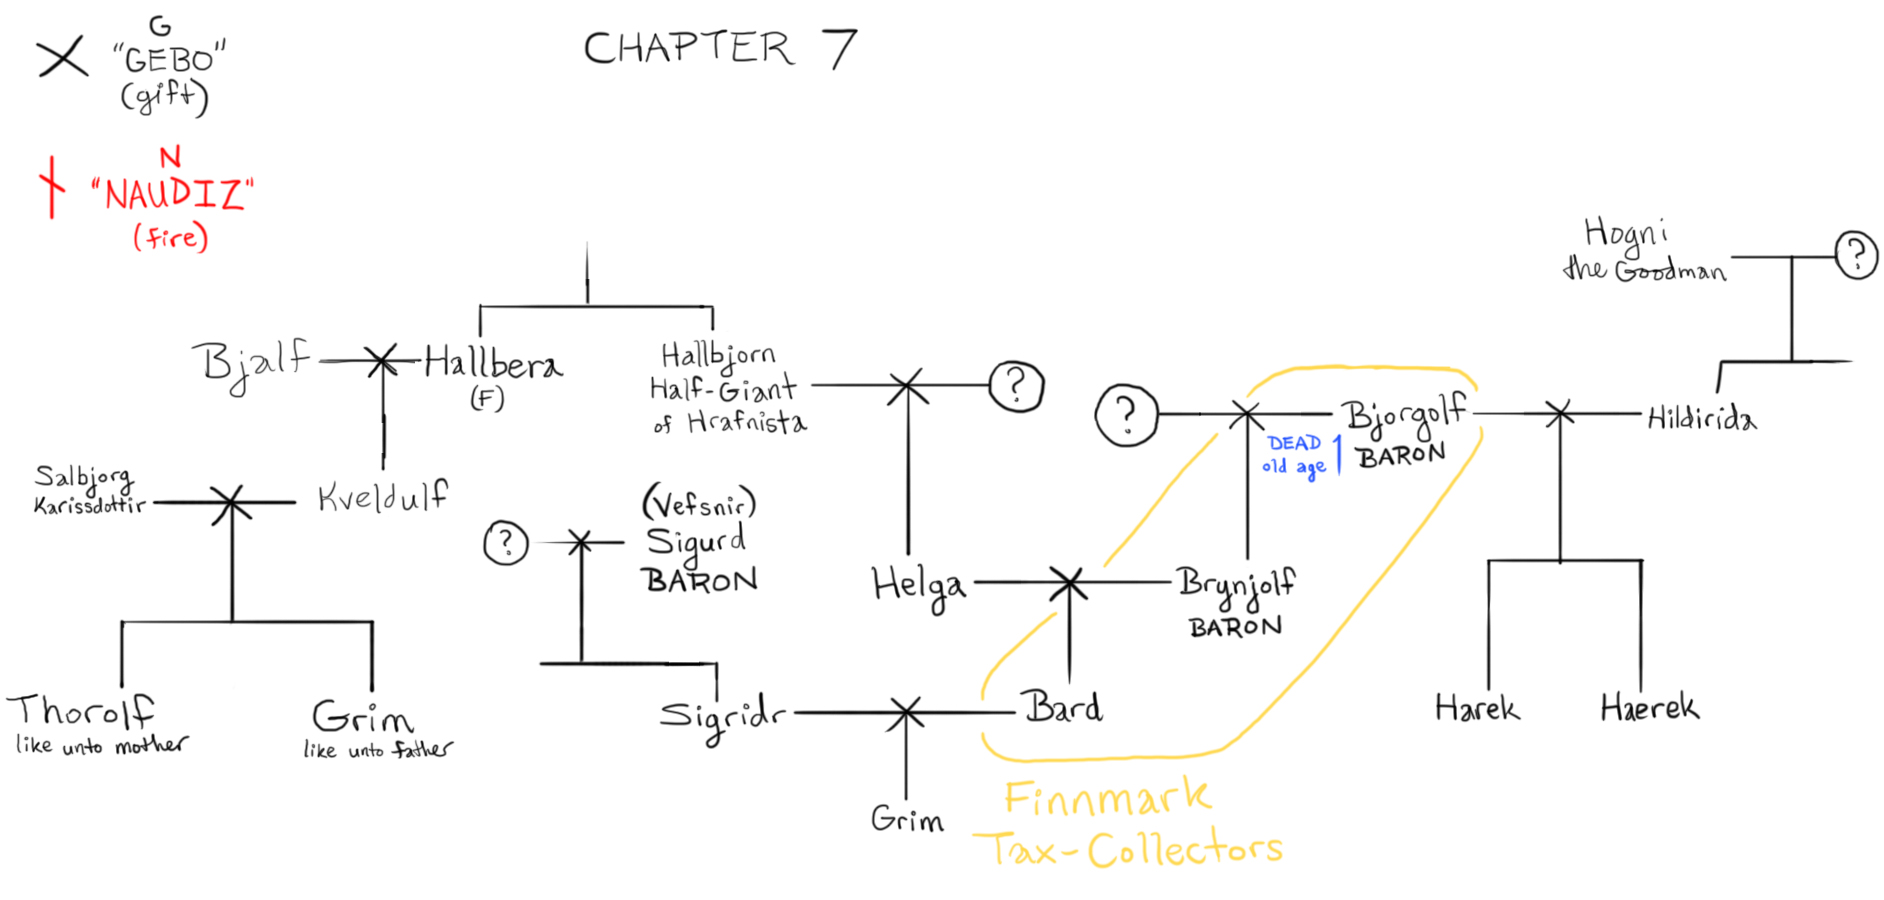 CHAPTER 7
G
"GEBO"
(gift)
N
"NAUDIZ"
(fire)
Hogni
the Goodman
?
Bjalf
Hallbera
(F)
Hallbjorn
Half-Giant
of Hrafnista
?
?
Bjorgolf
BARON
DEAD
old age
Hildirida
Salbjorg
Karissdottir
Kveldulf
?
(Vefsnir)
Sigurd
BARON
Helga
Brynjolf
BARON
Thorolf
like unto mother
Grim
like unto father
Sigridr
Bard
Harek
Haerek
Grim
Finnmark
Tax-Collectors